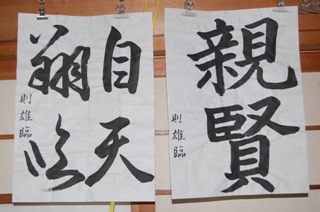 親賢
則雄臨
自天
翔臨
則雄臨